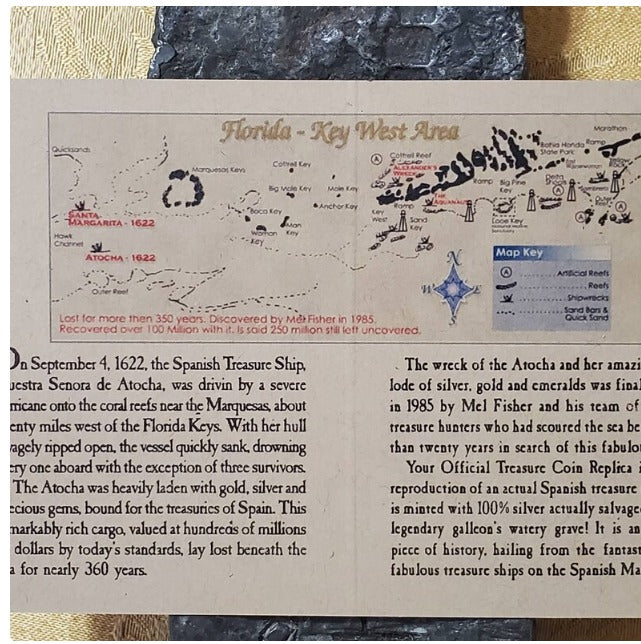 Florida - Key West Area
Quicksands
Marquesas Keys
Cottrell Key
Big Mole Key
Mole Key
Boca Key
Anchor Key
Man
Key
Woman
Key
SANTA
MARGARITA - 1622
Hawk
Channel
ATOCHA - 1622
Outer Reef
A
Cottrell Reef
ALEXANDER'S
WRECK
Ramp
Key
West
Ramp
THE
AQUANAUT
Sand
Key
Big Pine
Key
Looe Key
Bahia Honda
State Park
Ramp
Marathon
A
Delta
Shoal
A
Sombrero
A
Map Key
A ........ Artificial Reefs
........ Reefs
........ Shipwrecks
........ Sand Bars &
Quick Sand
N
W E
S
Lost for more then 350 years. Discovered by Mel Fisher in 1985.
Recovered over 100 Million with it. Is said 250 million still left uncovered.
On September 4, 1622, the Spanish Treasure Ship,
uestra Senora de Atocha, was drivin by a severe
rricane onto the coral reefs near the Marquesas, about
enty miles west of the Florida Keys. With her hull
vagely ripped open, the vessel quickly sank, drowning
ery one aboard with the exception of three survivors.
The Atocha was heavily laden with gold, silver and
ecious gems, bound for the treasuries of Spain. This
markably rich cargo, valued at hundreds of millions
dollars by today's standards, lay lost beneath the
a for nearly 360 years.
The wreck of the Atocha and her amazi
lode of silver, gold and emeralds was final
in 1985 by Mel Fisher and his team of
treasure hunters who had scoured the sea be
than twenty years in search of this fabulo
Your Official Treasure Coin Replica i
reproduction of an actual Spanish treasure
is minted with 100% silver actually salvage
legendary galleon's watery grave! It is an
piece of history, hailing from the fantast
fabulous treasure ships on the Spanish Ma